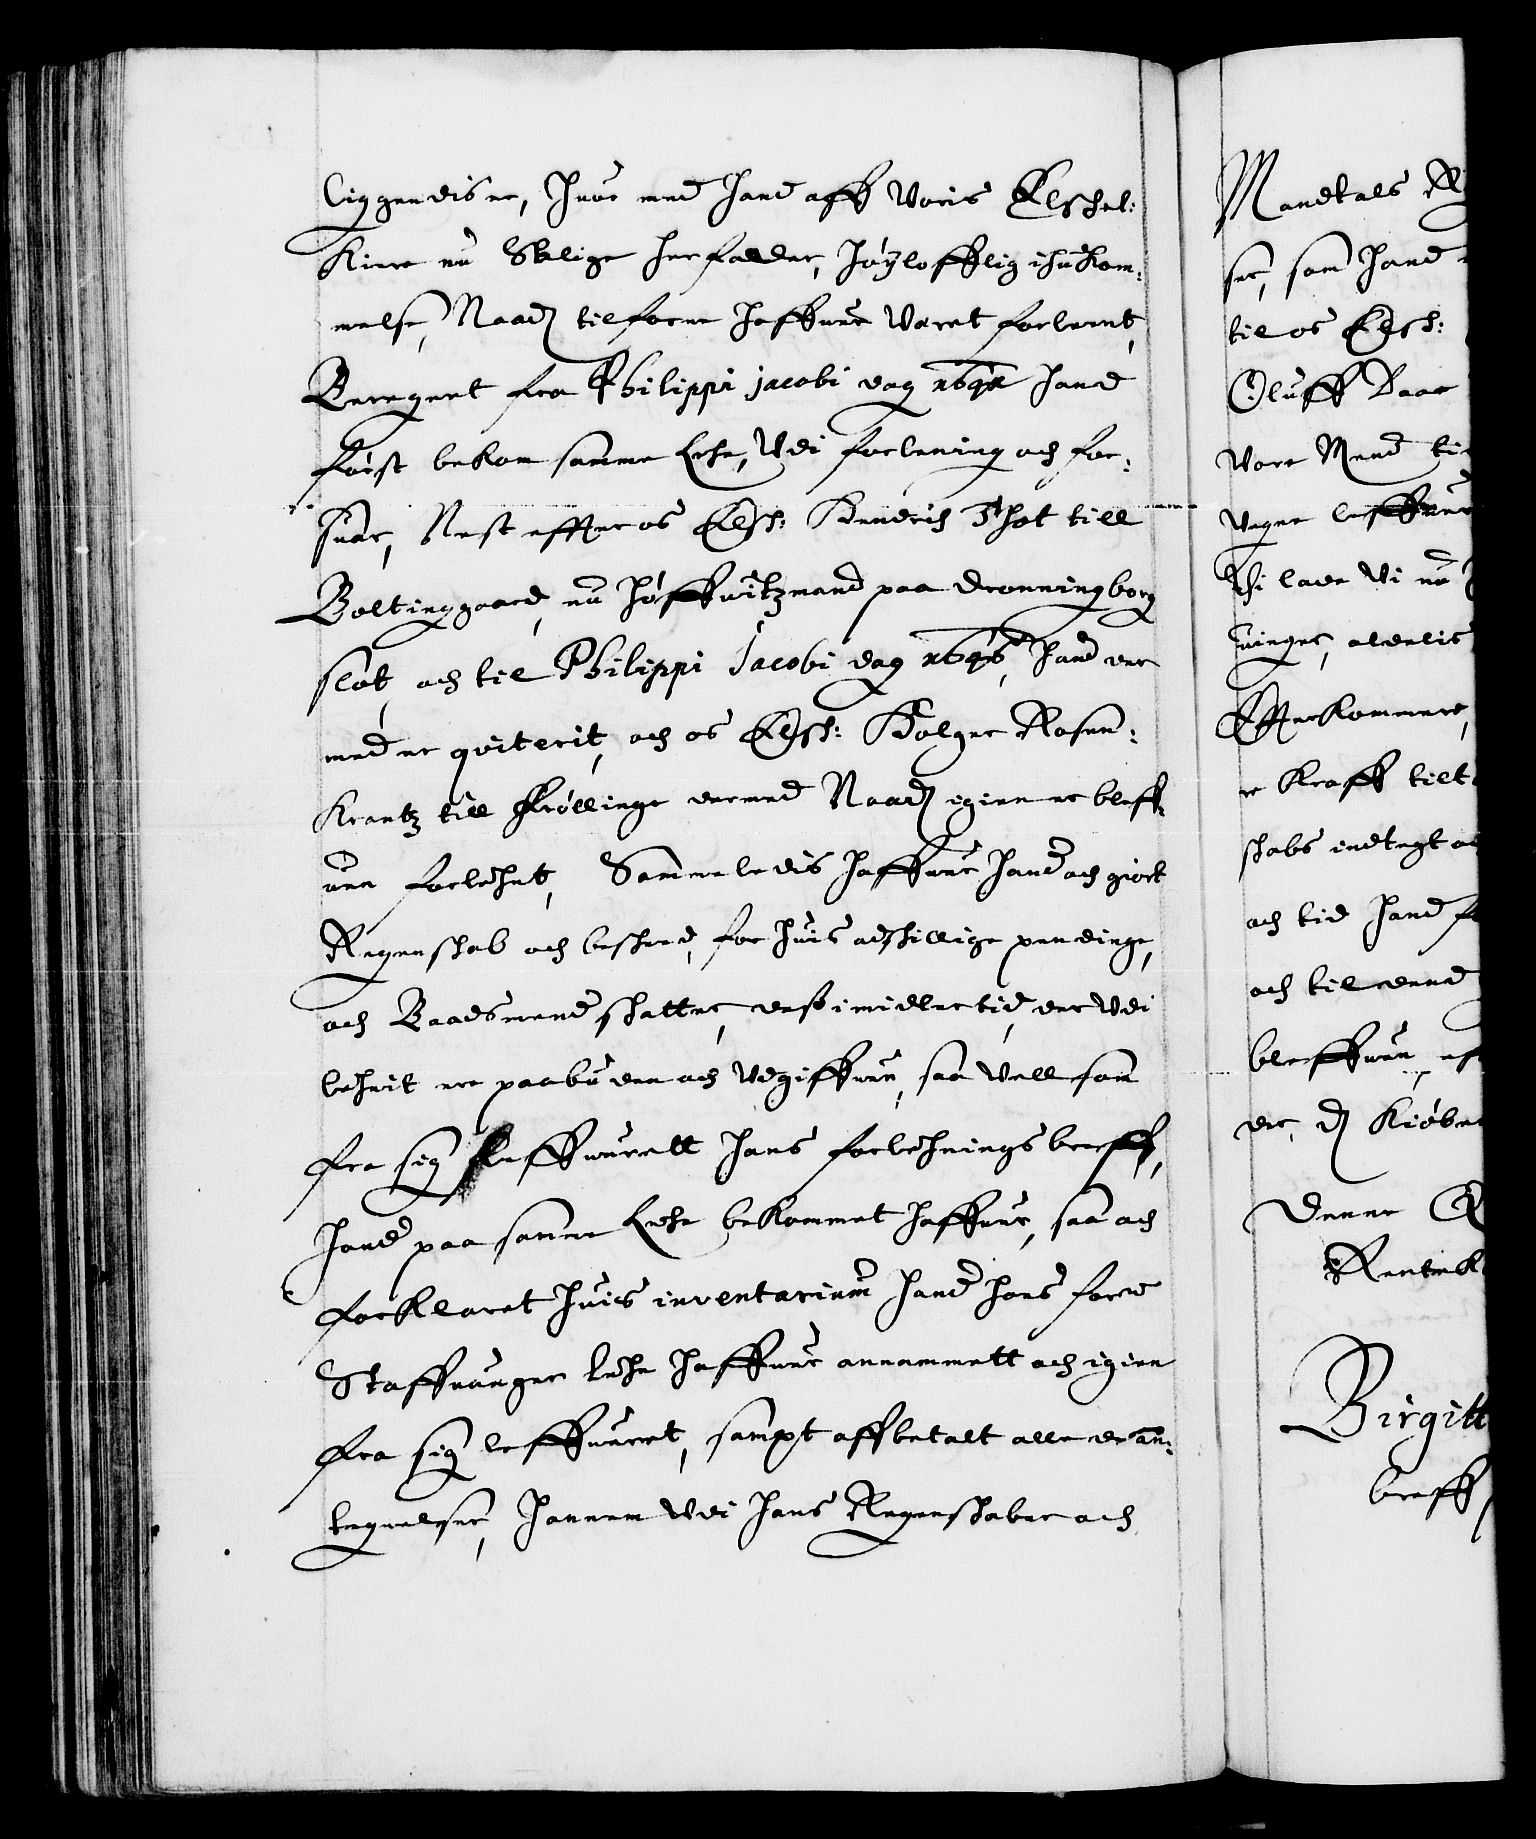 liggendis er, Huor med hand aff Voris Elschel:
Kiere nu Salige herfader, Høylofflig ihukom¬
melse, Naad: tilforne haffuer Veret forleent,
Beregnet fra Philippi jacobi dag hand
først bekom samme Lehn, Vdi forlening och for¬
suar, Nest effter os Elsch: Hendrich Thot till
Boltinggaard, nu Høffuitzmand paa Dronningborg
slot, och til Philippi Jacobi dag 1646, hand der
med er qviterit, och os Elsch: Holger Rosen¬
Krantz till Frøllinge dermed Naad: igien er bleff¬
uen forlehnt, Sammeledis haffuer hand och giort
Regenschab och beskeed, for huis adskillige pendinge,
och Baadsmend skatter, der i midler tid, der Vdi
lehnit ere paabuden och Vdgiffuen, saa Vell som
fra sig leffuerett hans forlehnings breff,
hand paa samme Lehn bekommet haffuer, saa och
forklaret huis inventarium hand hos for:ne
Staffuanger Lehn haffuer annammett och igien
fra sig leffueret, sampt affbetalt alle de an¬
tegnelser, hannem Vdi hans Regenskaber och
Mandtals
ser, som hand
til os Elsch:
Oluff Daae
Vore Mend
Vegne leffuer
Thi lade Vi nu
uinger, aldelis
Effterkommere,
e Krafft
skabs indtegt
och tid hand
och til dend
bleffuen,
der, D: Kiøben
Denne
Rentek
Birgitt
breff,